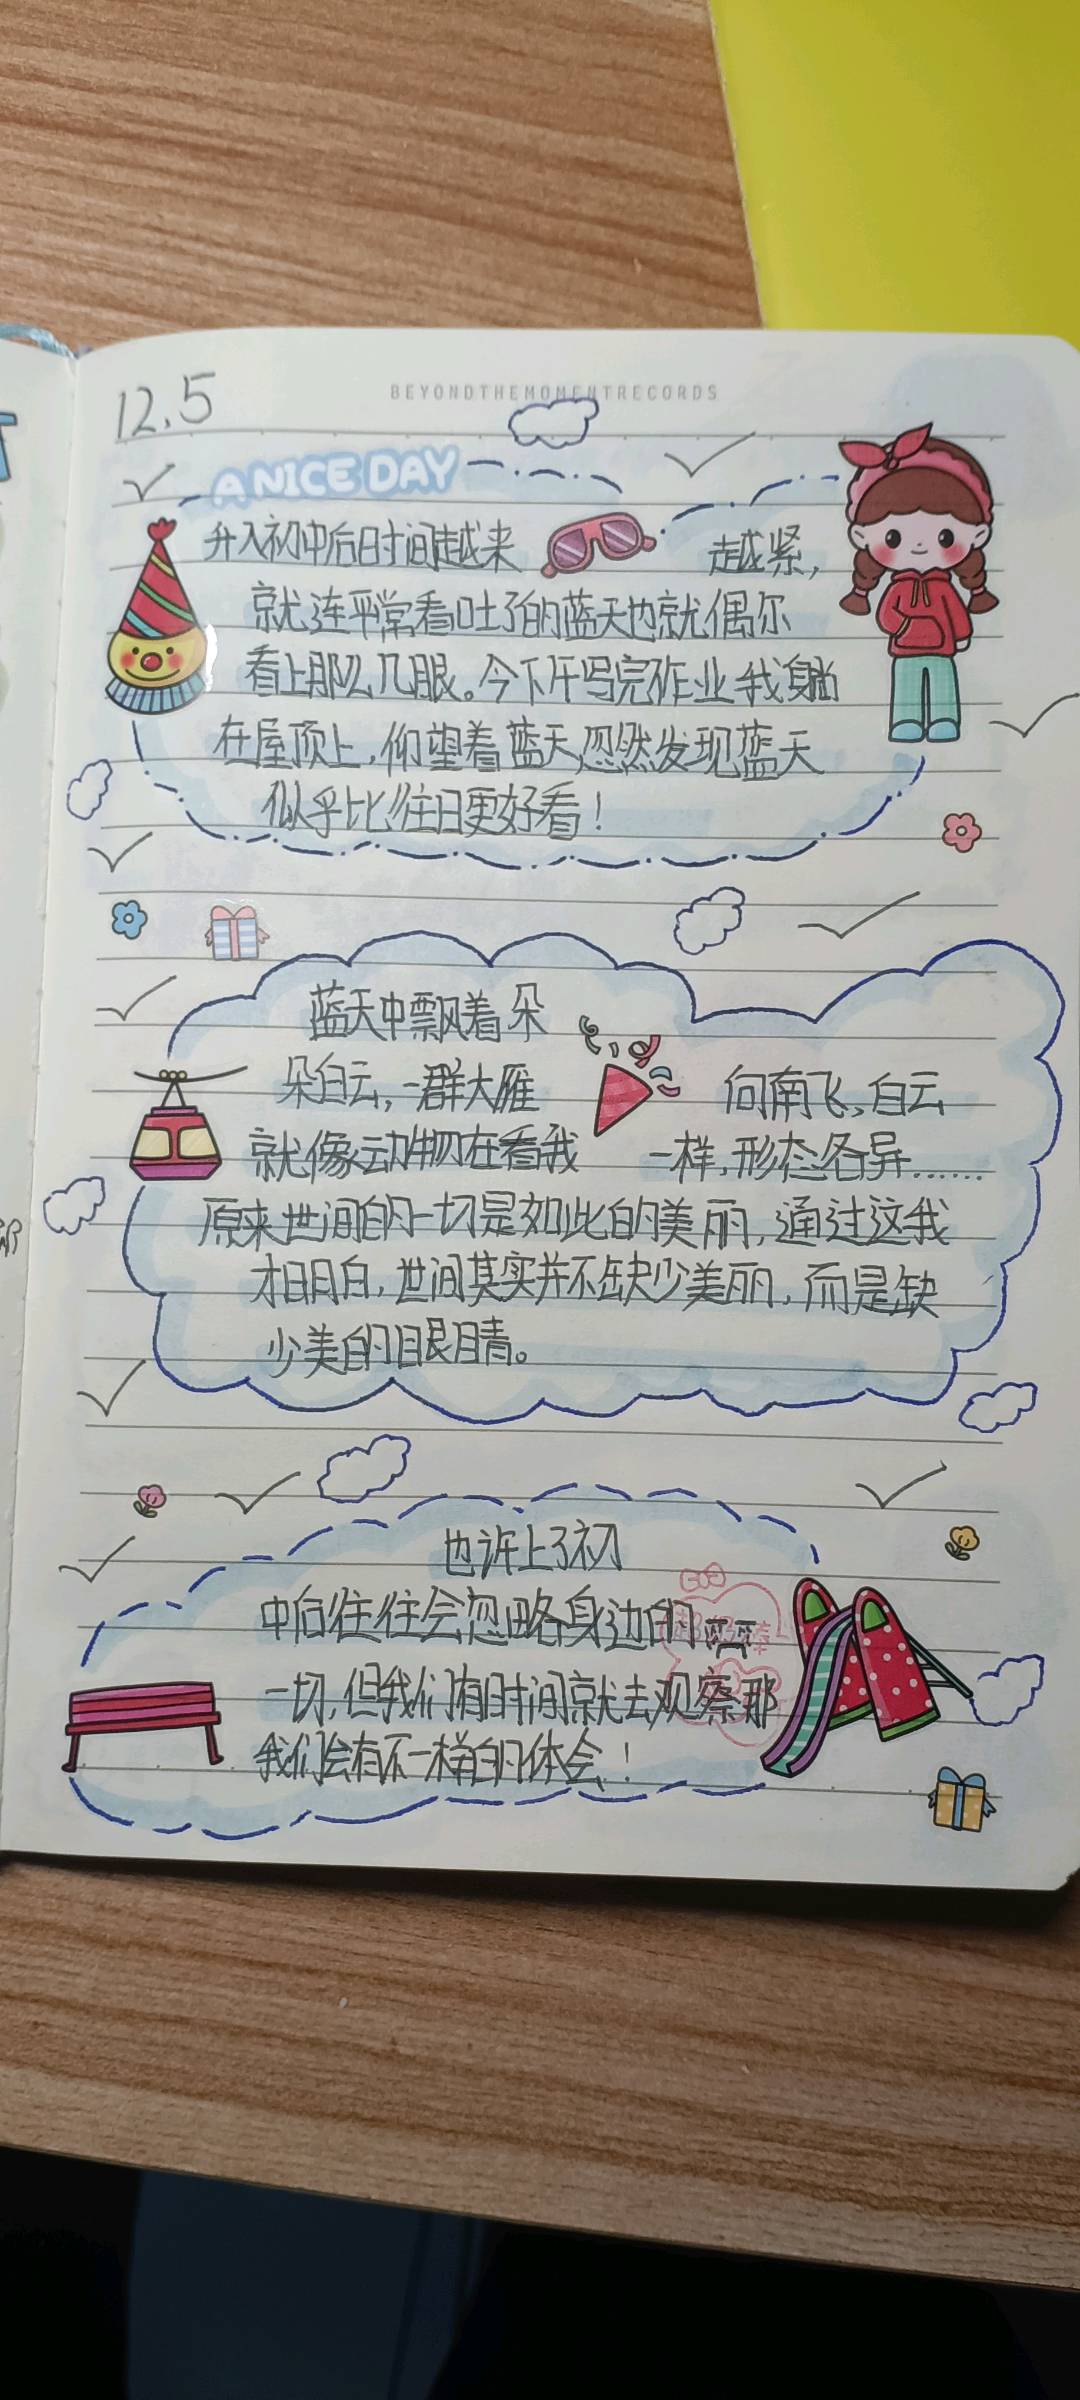 BEYONDTHEMOMENTRECORDS
12.5
A NICE DAY
升入初中后时间越来 越紧，
就连平常看吐了的蓝天也就偶尔
看上那么几眼。今下午写完作业我躺
在屋顶上，仰望着蓝天，忽然发现蓝天
似乎比往日更好看！
蓝天中飘着朵
朵白云，一群大雁 向南飞，白云
就像动物在看我 一样，形态各异……
原来世间的一切是如此的美丽，通过这我
才明白，世间其实并不缺少美丽，而是缺
少美的眼睛。
也许上了初
中后往往会忽略身边的
一切，但我们有时间就去观察那
我们会有不一样的体会！